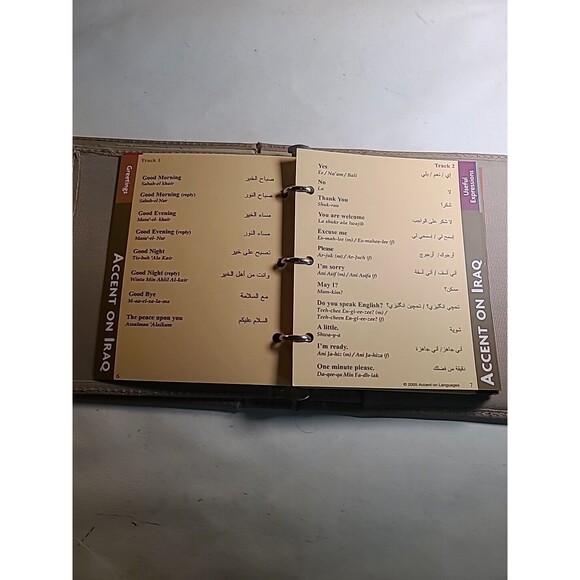 Greetings
Track 1
Good Morning صباح الخير
Sabah-el khair
Good Morning (reply) صباح النور
Sabah-el Nur
Good Evening مساء الخير
Masa'-el- khair
Good Evening (reply) مساء النور
Masa'-el- Nur
Good Night تصبح على خير
Tis-bah 'Ala Kair
Good Night (reply) وانت من أهل الخير
Winta Min Ahlil Al-kair
Good Bye مع السلامة
M-aa-el-sa-la-ma
The peace upon you السلام عليكم
Assalmau 'Alaikum
6
ACCENT ON IRAQ
Useful Expressions
Track 2
Yes أي / نعم / بلي
Ee / Na'am / Bali
No لا
La
Thank You شكرا
Shuk-ran
You are welcome لا شكر على الواجب
La shukr ala
Excuse me إسمح لي / إسمحي لي
Es-mah-lee (m) / Es-mahee-lee (f)
Please أرجوك / أرجوج
Ar-juk (m) / Ar-juch (f)
I'm sorry آني آسف / آني آسفة
Ani Asif (m) / Ani Asifa (f)
May I? ممكن؟
Mum-kin?
Do you speak English? تحجي انكليزي؟ / تحجين انكليزي؟
Teeh-chee En-gi-ee-zee? (m) /
Teeh-cheen En-gi-ee-zee? (f)
A little. شوية
Shwa-y-a
I'm ready. آني جاهز / آني جاهزة
Ani Ja-hiz (m) / Ani Ja-hiza (f)
One minute please. دقيقة من فضلك
Da-qee-qa Min Fa-dh-lak
© 2005 Accent on Languages
7
ACCENT ON IRAQ